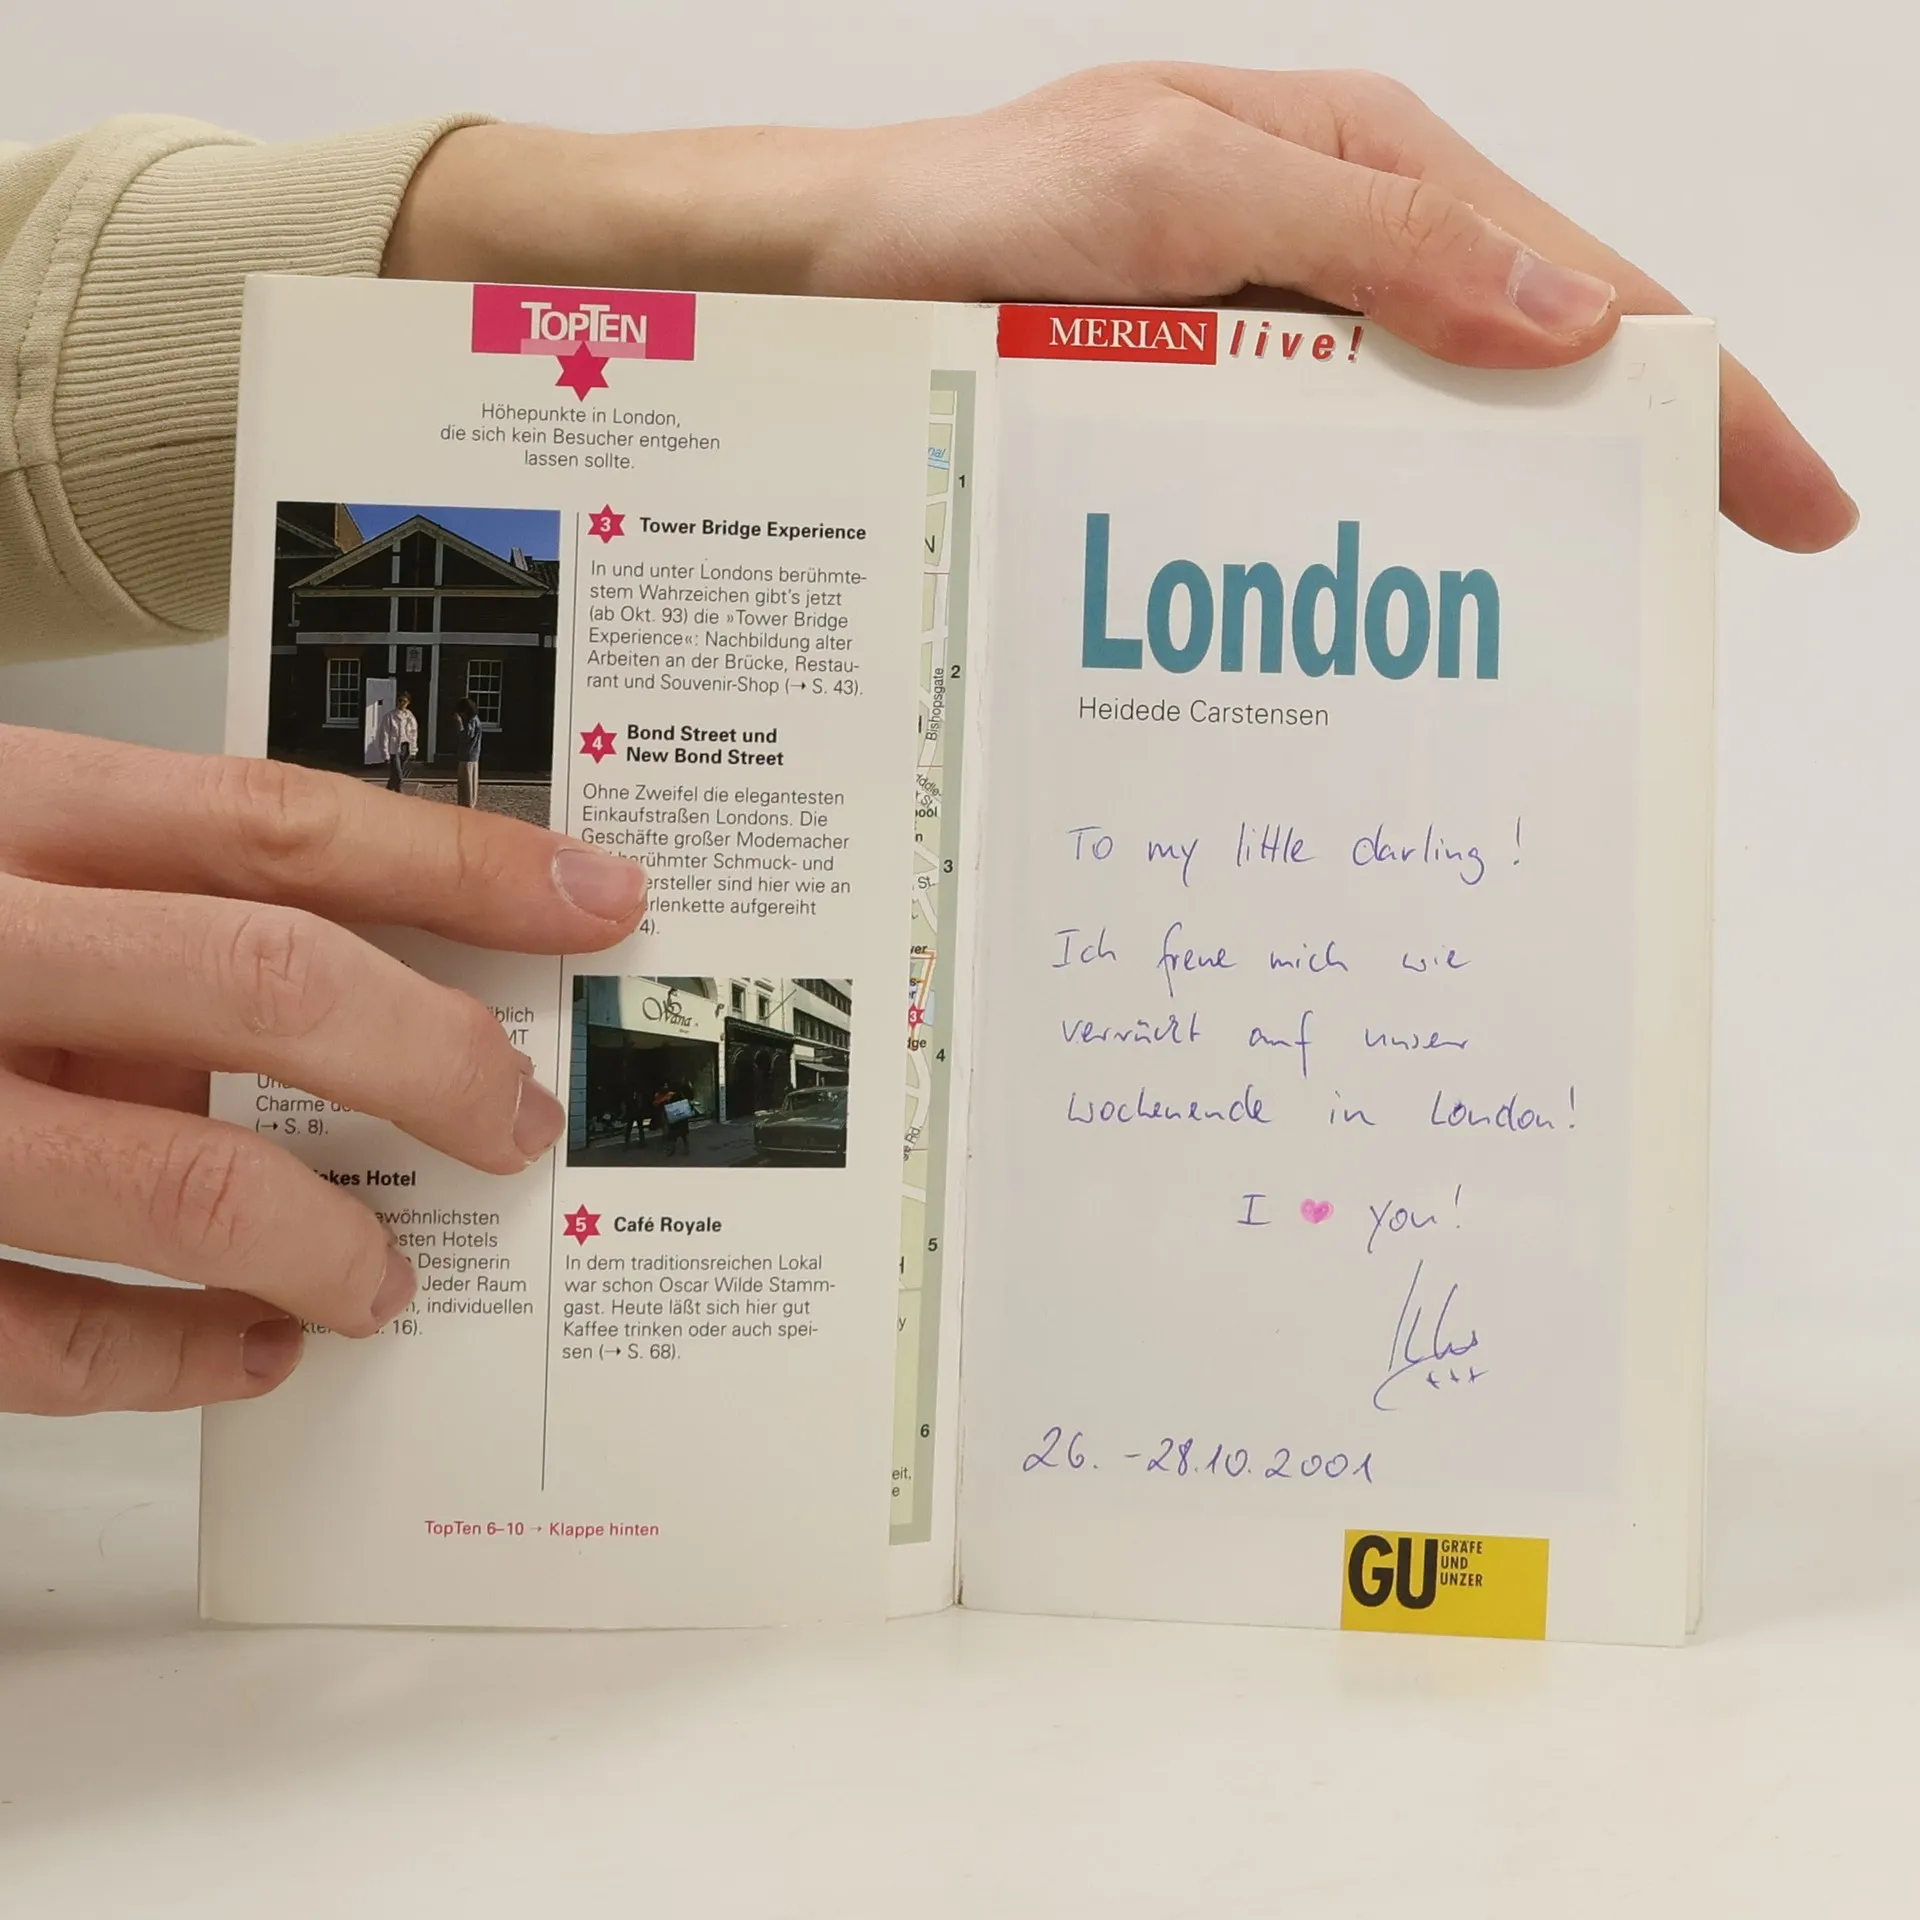 TOPTEN
Höhepunkte in London,
die sich kein Besucher entgehen
lassen sollte.
iblich
MT
Charme
(→ S. 8).
akes Hotel
ewöhnlichsten
sten Hotels
Designerin
Jeder Raum
, individuellen
16).
3
Tower Bridge Experience
In und unter Londons berühmte-
stem Wahrzeichen gibt's jetzt
(ab Okt. 93) die »Tower Bridge
Experience«: Nachbildung alter
Arbeiten an der Brücke, Restau-
rant und Souvenir-Shop (→ S. 43).
4
Bond Street und
New Bond Street
Ohne Zweifel die elegantesten
Einkaufstraßen Londons. Die
Geschäfte großer Modemacher
berühmter Schmuck- und
ersteller sind hier wie an
rlenkette aufgereiht
4).
5
Café Royale
In dem traditionsreichen Lokal
war schon Oscar Wilde Stamm-
gast. Heute läßt sich hier gut
Kaffee trinken oder auch spei-
sen (→ S. 68).
TopTen 6–10 → Klappe hinten
nal
1
N
2
Bishopsgate
ool
3
St.
3
dge
4
Rd.
5
y
6
eit,
e
MERIAN live!
London
Heidede Carstensen
To my little darling!
Ich freue mich wie
verrückt auf unser
Wochenende in London!
I ♥ you!
26. - 28.10.2001
GU
GRÄFE
UND
UNZER